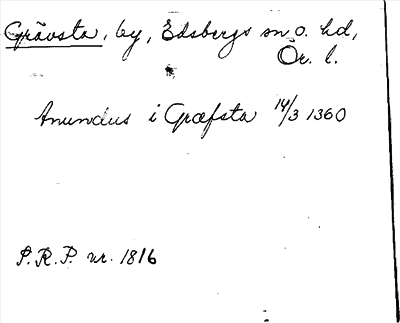 Grävsta, by, Edsbergs sn o. hd,
Ör. l.
Anundus i Græfsta 14/3 1360
S.R.P. nr. 1816